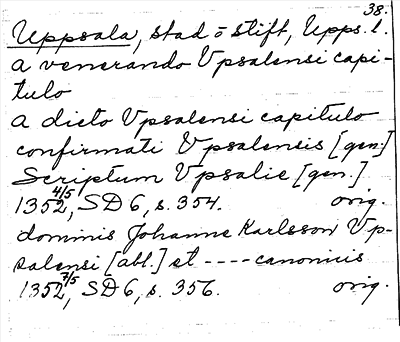 38.
Uppsala, stad o stift, Upps. l.
a venerando Vpsalensi capi-
tulo
a dicto Vpsalensi capitulo
confirmati Vpsalensis [gen.]
Scriptum Vpsalie [gen.]
1352 4/5, SD 6, s. 354. orig.
dominis Johanne Karlsson Vp-
salensi [abl.] et ---- canonicis
1352 7/5, SD 6, s. 356. orig.